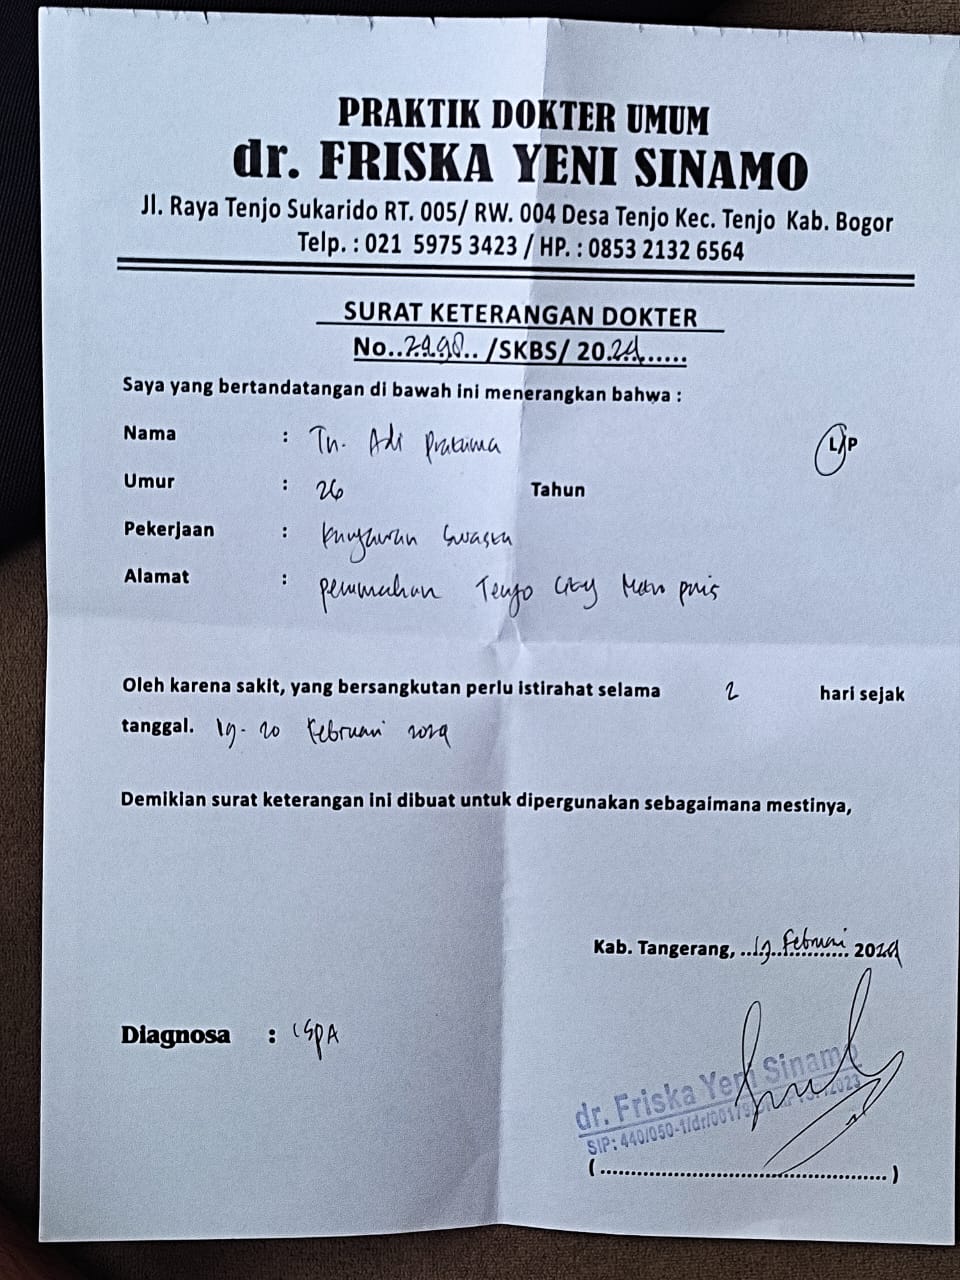 PRAKTIK DOKTER UMUM
dr. FRISKA YENI SINAMO
Jl. Raya Tenjo Sukarido RT. 005/ RW. 004 Desa Tenjo Kec. Tenjo Kab. Bogor
Telp. : 021 5975 3423 / HP. : 0853 2132 6564
SURAT KETERANGAN DOKTER
No.. .. /SKBS/ 2024......
Saya yang bertandatangan di bawah ini menerangkan bahwa :
Nama : Tn. Adi Pratama L/P
Umur : 26 Tahun
Pekerjaan : Karyawan Swasta
Alamat : perumahan Tenjo City
Oleh karena sakit, yang bersangkutan perlu istirahat selama 2 hari sejak
tanggal. 19-20 Februari 2024
Demikian surat keterangan ini dibuat untuk dipergunakan sebagaimana mestinya,
Kab. Tangerang, ...19..Februari........... 2024
Diagnosa : ISPA
dr. Friska Yeni Sinamo
SIP: 440/050-1/dr/001/
(................................................)